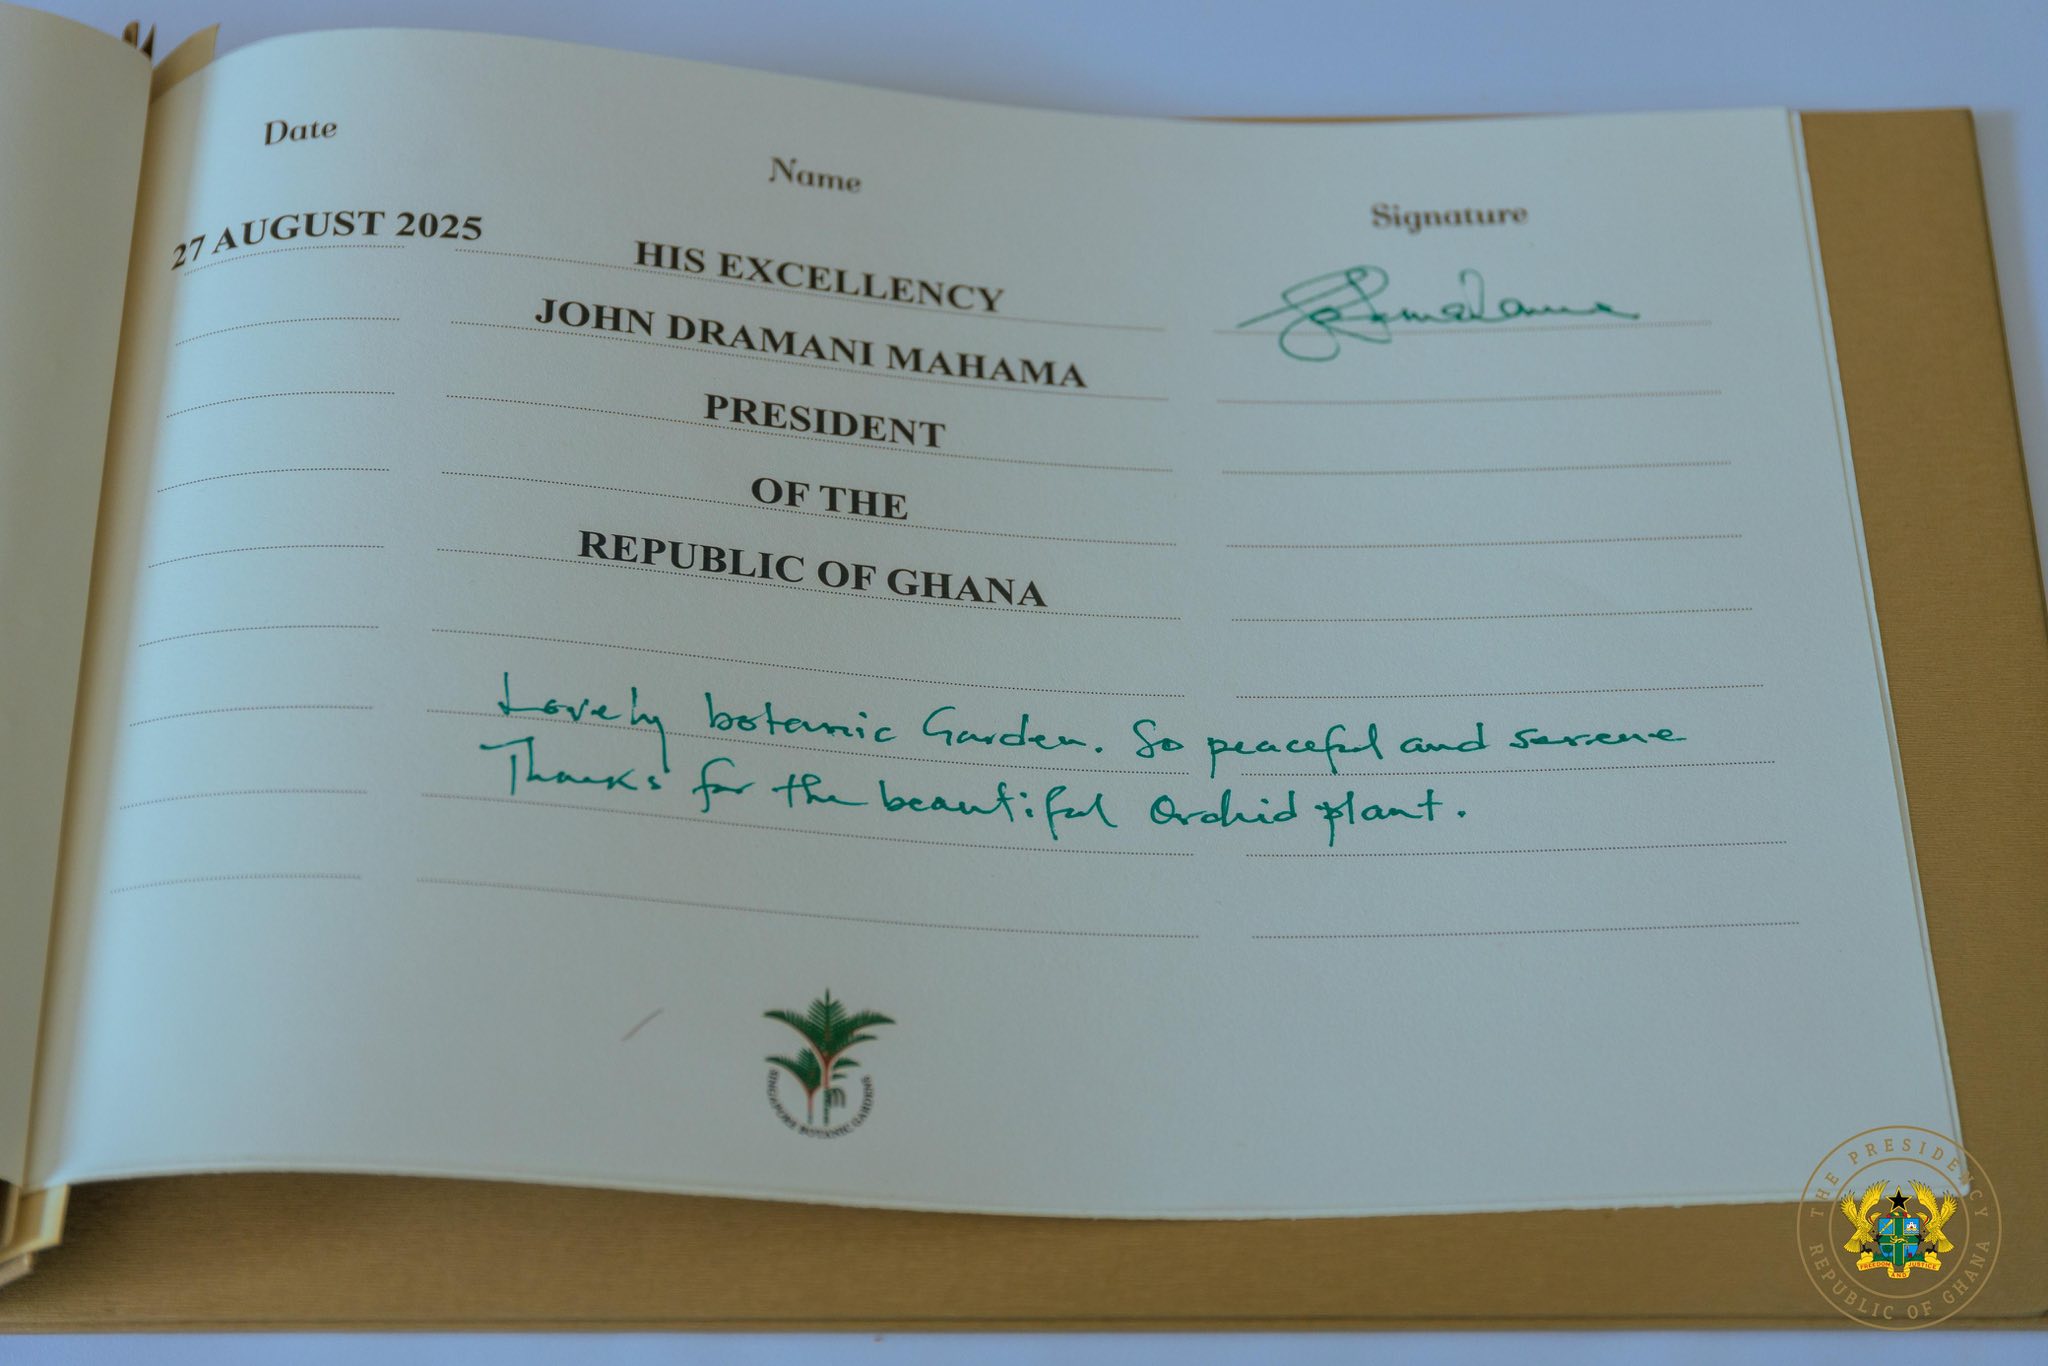 Date
Name
Signature
27 AUGUST 2025
HIS EXCELLENCY
JOHN DRAMANI MAHAMA
PRESIDENT
OF THE
REPUBLIC OF GHANA
Lovely botanic Garden. So peaceful and serene
Thanks for the beautiful Orchid plant.
SINGAPORE BOTANIC GARDENS
THE PRESIDENCY
REPUBLIC OF GHANA
FREEDOM AND JUSTICE